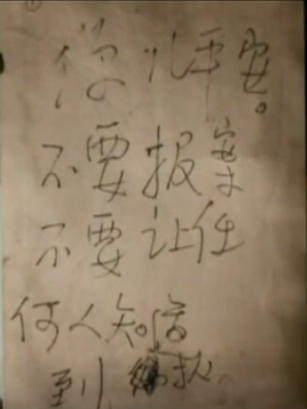 你儿平安。
不要报案
不要让任
何人知道
到 款